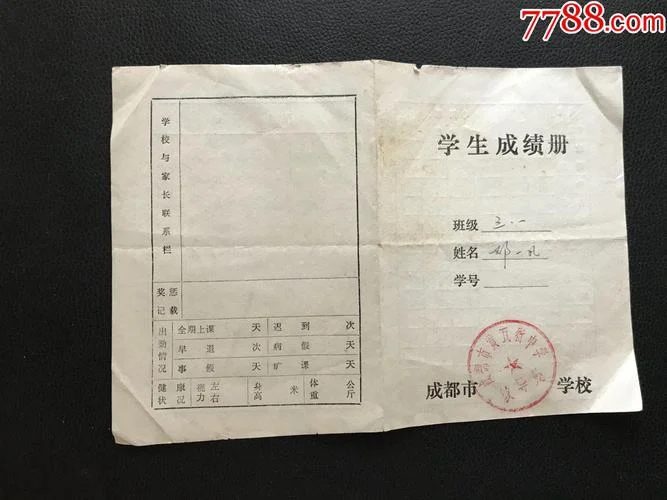 7788.com
学校与家长联系栏
奖惩记载
出勤情况
全期上课 天 迟到 次
早退 次 病假 天
事假 天 旷课 天
健康状况 视力 左右 身高 米 体重 公斤
学生成绩册
班级 三.一
姓名 邓一凡
学号
成都市 学校